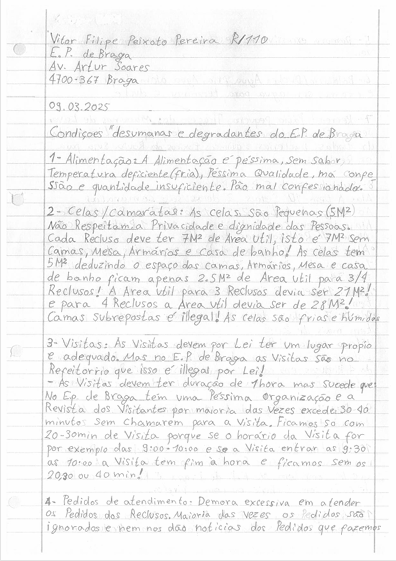 Vitor Filipe Peixoto Pereira R/110
E.P. de Braga
Av. Artur Soares
4700-367 Braga
09.03.2025
Condiçoes "desumanas e degradantes do E.P. de Braga
1- Alimentação: A Alimentação é péssima, Sem Sabor
Temperatura deficiente (fria), Péssima Qualidade, ma confe
ssão e quantidade insuficiente. Pão mal confesionado.
2- Celas/camaratas: As celas são Pequenas (5M²)
Não Respeitam a Privacidade e dignidade das Pessoas.
Cada Recluso deve ter 7M² de Area Util, isto é 7M² Sem
Camas, Mesa, Armários e Casa de banho! As celas tem
5M² deduzindo o espaço das camas, Armários, Mesa e casa
de banho ficam apenas 2.5M² de Area util para 3/4
Reclusos! A Area util para 3 Reclusos devia ser 21M²!
e para 4 Reclusos a Area util devia ser de 28M²!
Camas Subrepostas é illegal! As celas são frias e húmidas
3- Visitas: As Visitas devem por Lei ter um lugar propio
e adequado. Mas no E.P de Braga as Visitas são no
Refeitorrio que isso é illegal por Lei!
- As Visitas devem ter duração de 1hora mas Sucede que
No Ep. de Braga tem uma Péssima Organização e a
Revista dos Visitantes por maioria das Vezes excede 30-40
minuto Sem Chamarem para a Visita. Ficamos so com
20-30min de Visita porque se o horário da Visita for
por exemplo das 9:00-10:00 e se a Visita entrar as 9:30
as 10:00 a Visita tem fim á hora e ficamos Sem os
20,30 ou 40 min!
4- Pedidos de atendimento: Demora excessiva em atender
os Pedidos dos Reclusos. Maioria das Vezes os Pedidos são
ignorados e nem nos dão noticias dos Pedidos que fazemos